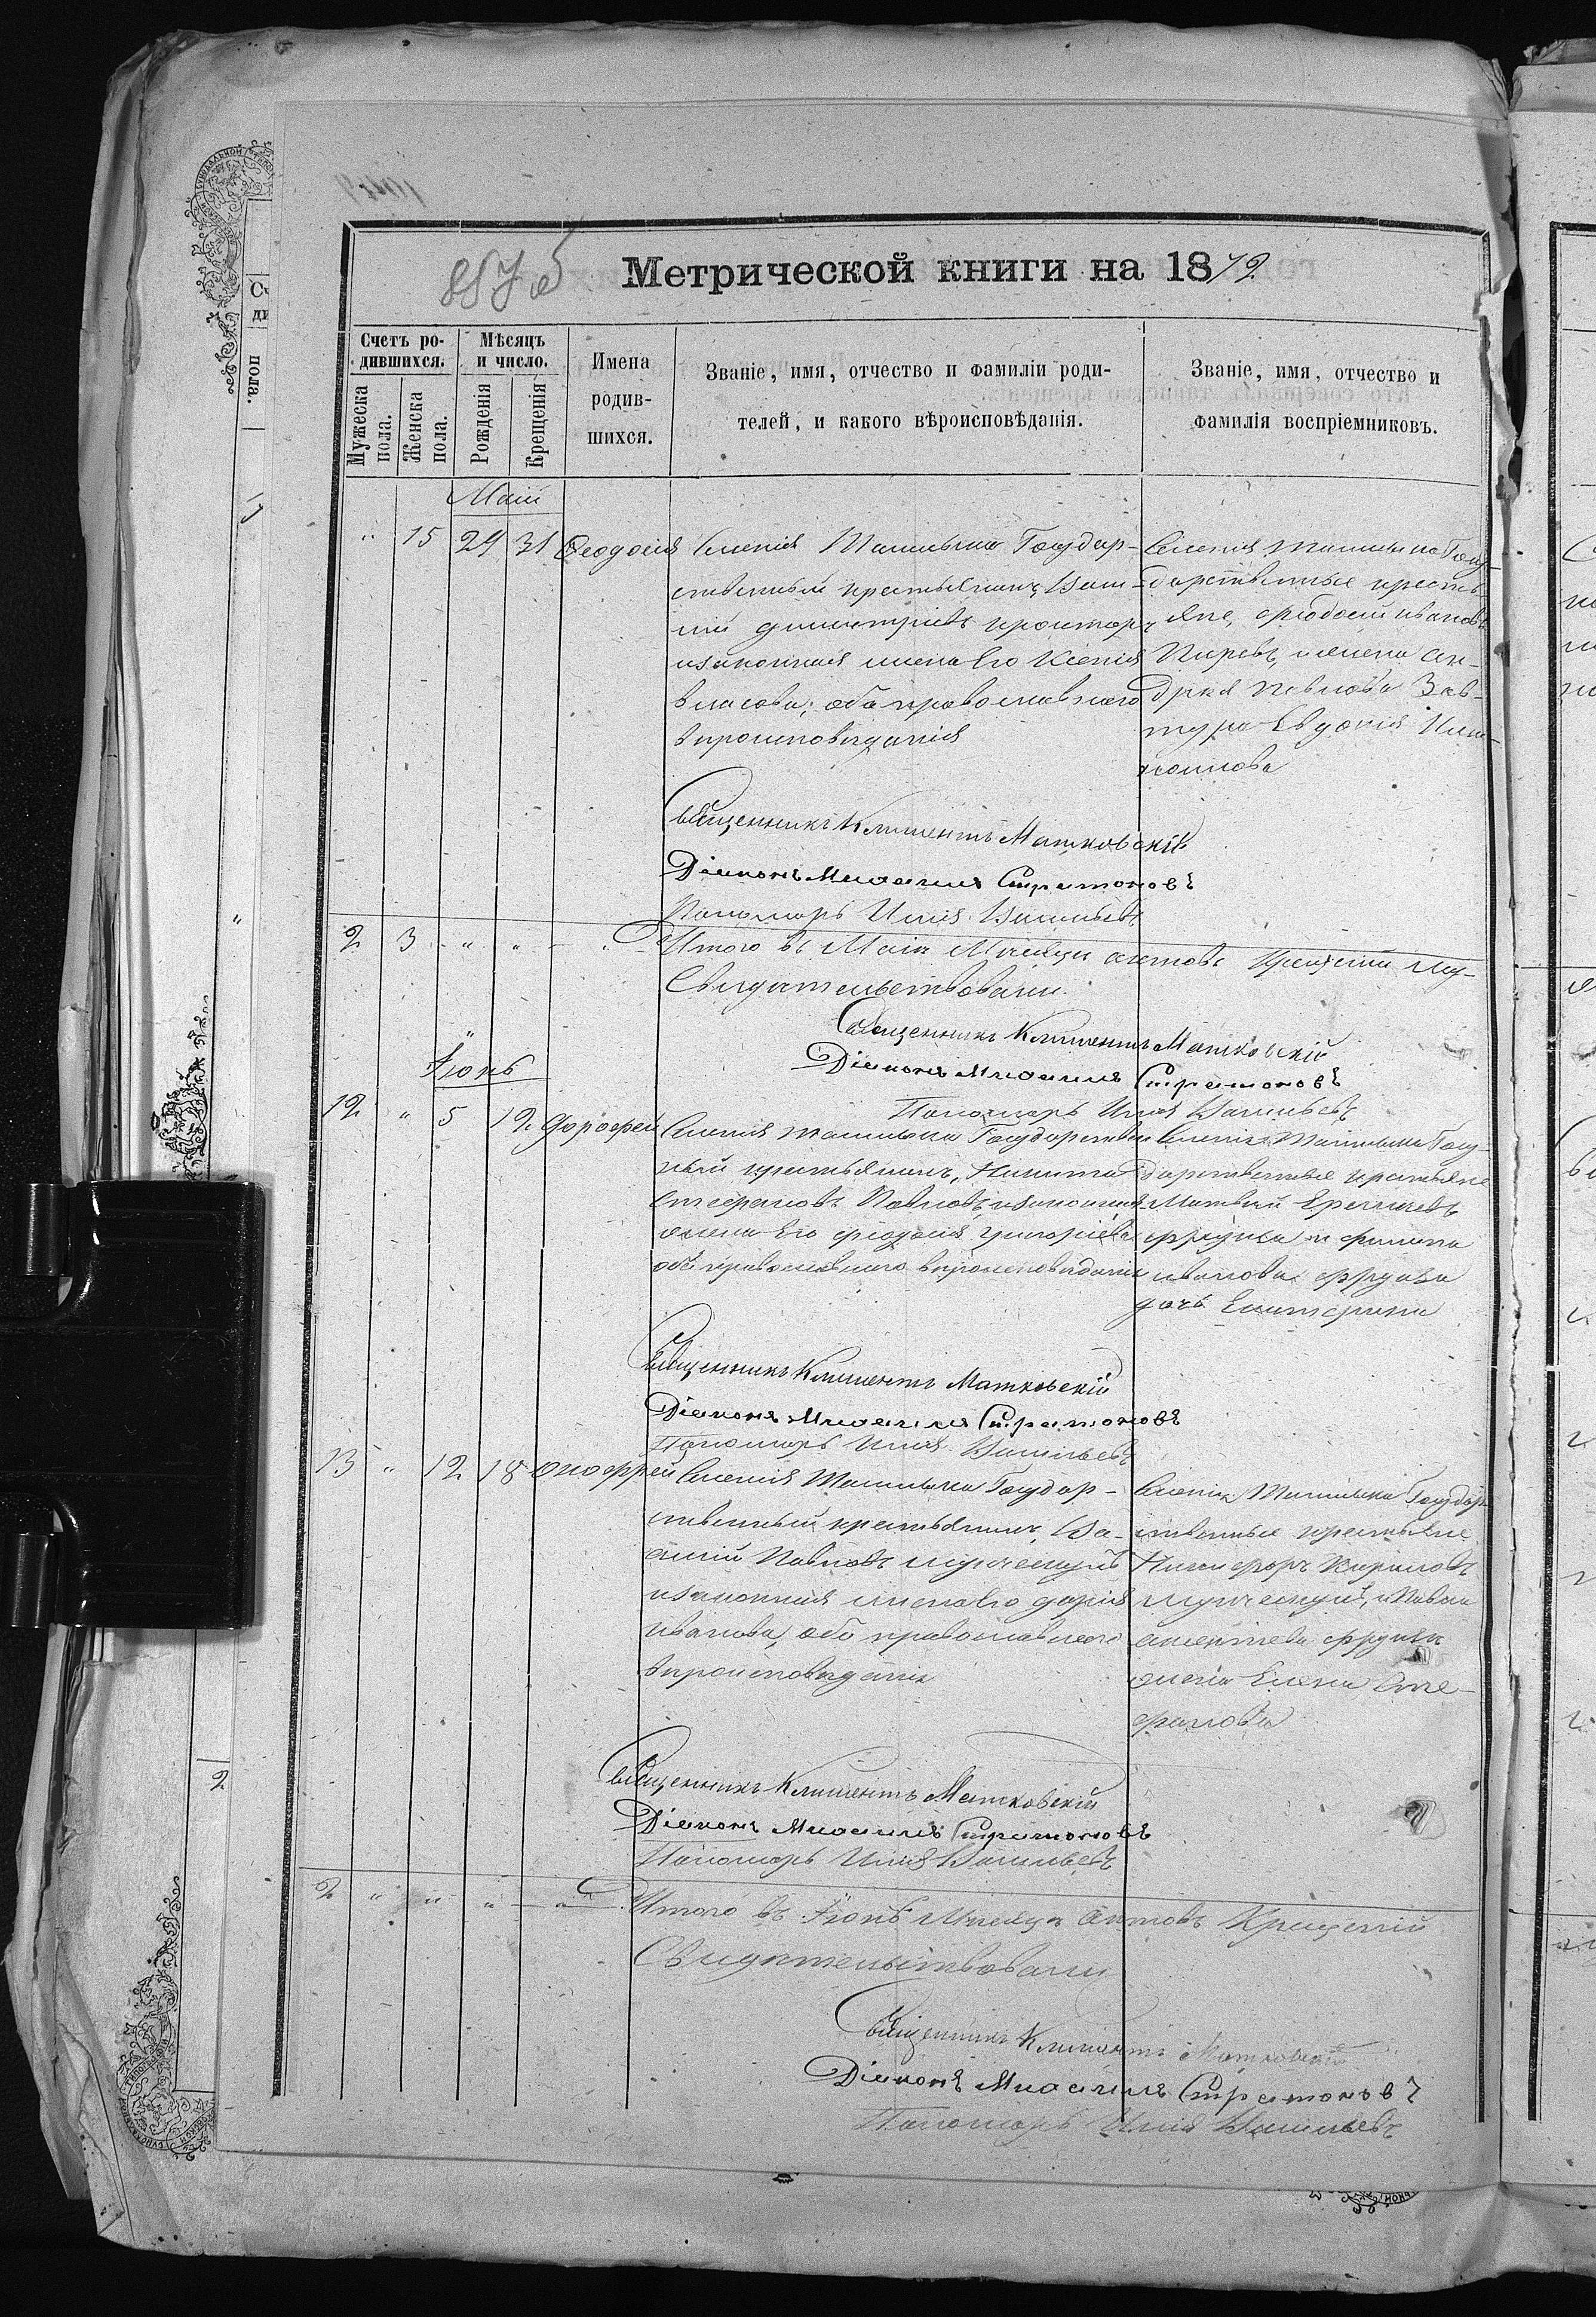 Метрической книги на 1872
Счетъ ро-
дившихся.
Мѣсяцъ
и число.
Мужеска
пола.
Женска
пола.
Рожденія
Крещенія
Имена
родив-
шихся.
Званіе, имя, отчество и фамиліи роди-
телей, и какого вѣроисповѣданія.
Званіе, имя, отчество и
фамилія воспріемниковъ.
Маій
" 15 29 31 Ѳеодосія
Селенія Ташлыка Государ-
ственный крестьянинъ, Васи-
лій Димитріевъ
изаконная жена Его Ксенія
Власова; оба православнаго
вѣроисповѣданія
Селенія Ташлыка Госу-
дарственные кресть-
яне, Ивановъ
и жена Ан-
дрея Павлова Зав-
тура Евдокія
Священникъ Климентъ Матковскій
Діаконъ Мисаилъ Стратоновъ
Пономарь Илія Васильевъ
2 3 " " Итого въ Маіи Мѣсяцѣ актовъ Крещеній
Свидѣтельствовали
Священникъ Климентъ Матковскій
Діаконъ Мисаилъ Стратоновъ
Пономарь Илія Васильевъ
Іюнь
12 " 5 12 Дорофей
Селенія Ташлыка Государствен
ный крестьянинъ, Никита
Стефановъ Павловъ, изаконная
жена Его Феодосія Григоріева
оба православнаго вѣроисповѣданія
Селенія Ташлыка Госу-
дарственные крестьяне
Матвѣй
и Филипа
Иванова
дочь Екатерина
Священникъ Климентъ Матковскій
Діаконъ Мисаилъ Стратоновъ
Пономарь Илія Васильевъ
13 " 12 18 Онофрей
Селенія Ташлыка Государ-
ственный крестьянинъ, Ва-
силій Павловъ
изаконная жена Его Дарія
Иванова, оба православнаго
вѣроисповѣданія
Селенія Ташлыка Государ
ственные крестьяне
Никифоръ Кириловъ
и Павла
жена Елена Сте-
фанова
Священникъ Климентъ Матковскій
Діаконъ Мисаилъ Стратоновъ
Пономарь Илія Васильевъ
2 " " " Итого въ Іюнѣ Мѣсяцѣ актовъ Крещеній
Свидѣтельствовали
Священникъ Климентъ Матковскій
Діаконъ Мисаилъ Стратоновъ
Пономарь Илія Васильевъ